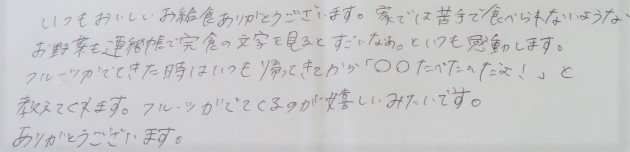 いつもおいしいお給食ありがとうございます。家では苦手で食べられないような
お野菜も連絡帳で完食の文字を見るとすごいなあ。といつも感動します。
フルーツがでてきた時はいつも帰ってきてから「〇〇たべたんだよ!」と
教えてくれます。フルーツがでてくるのが嬉しいみたいです。
ありがとうございます。